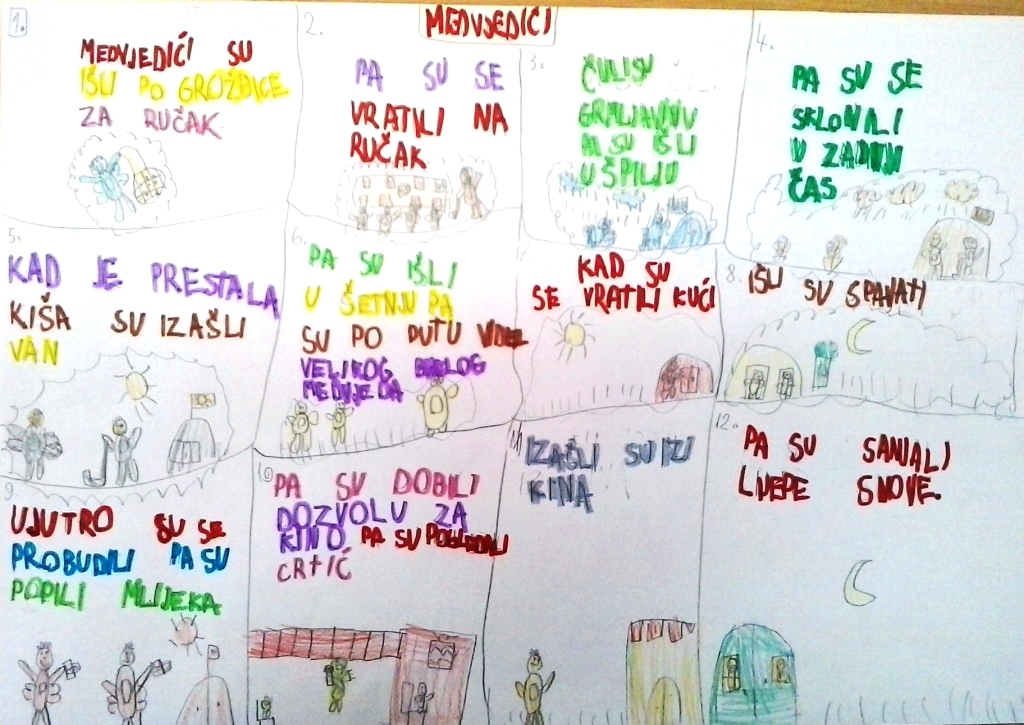 MEDVJEDIĆI
1.
MEDVJEDIĆI SU
IŠLI PO GROŽĐICE
ZA RUČAK
2.
PA SU SE
VRATILI NA
RUČAK
3.
ČULI SU
GRMLJAVINU
PA SU IŠLI
U ŠPILJU
4.
PA SU SE
SKLONILI
U ZADNJI
ČAS
5.
KAD JE PRESTALA
KIŠA SU IZAŠLI
VAN
6.
PA SU IŠLI
U ŠETNJU PA
SU PO PUTU
VELIKOG
MEDVJEDA
7.
KAD SU
SE VRATILI KUĆI
8.
IŠLI SU SPAVATI
9.
UJUTRO SU SE
PROBUDILI PA SU
POPILI MLIJEKA
10
PA SU DOBILI
DOZVOLU ZA
KINO PA SU POGLEDALI
CRTIĆ
11
IZAŠLI SU IZ
KINA
12.
PA SU SANJALI
LIJEPE SNOVE.